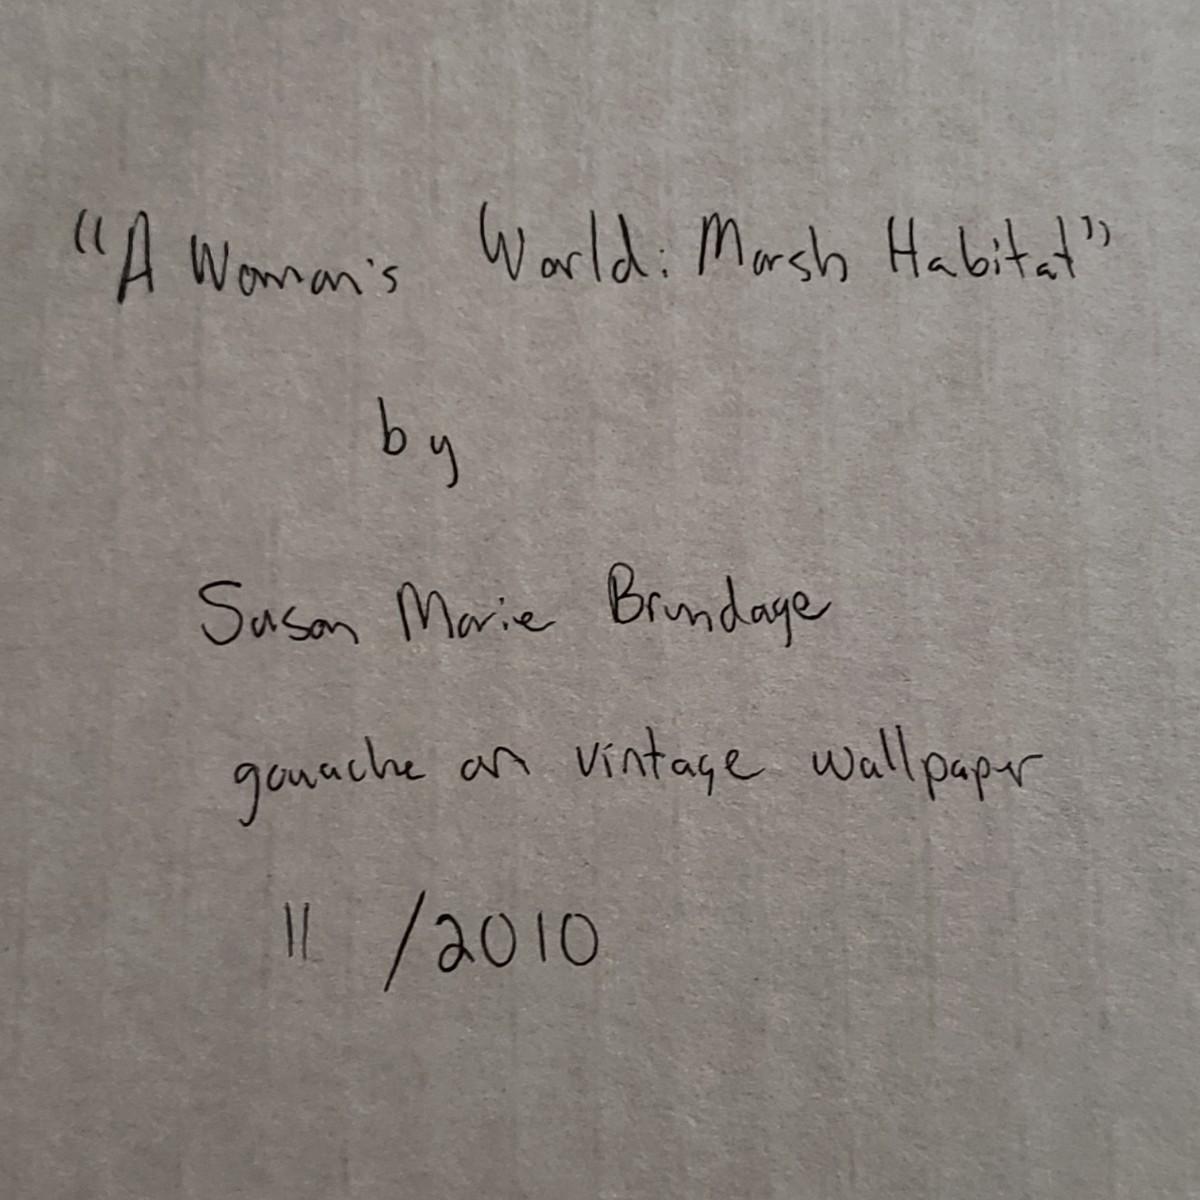 "A Woman's World: Marsh Habitat"
by
Susan Marie Brundage
gouache on vintage wallpaper
11 /2010